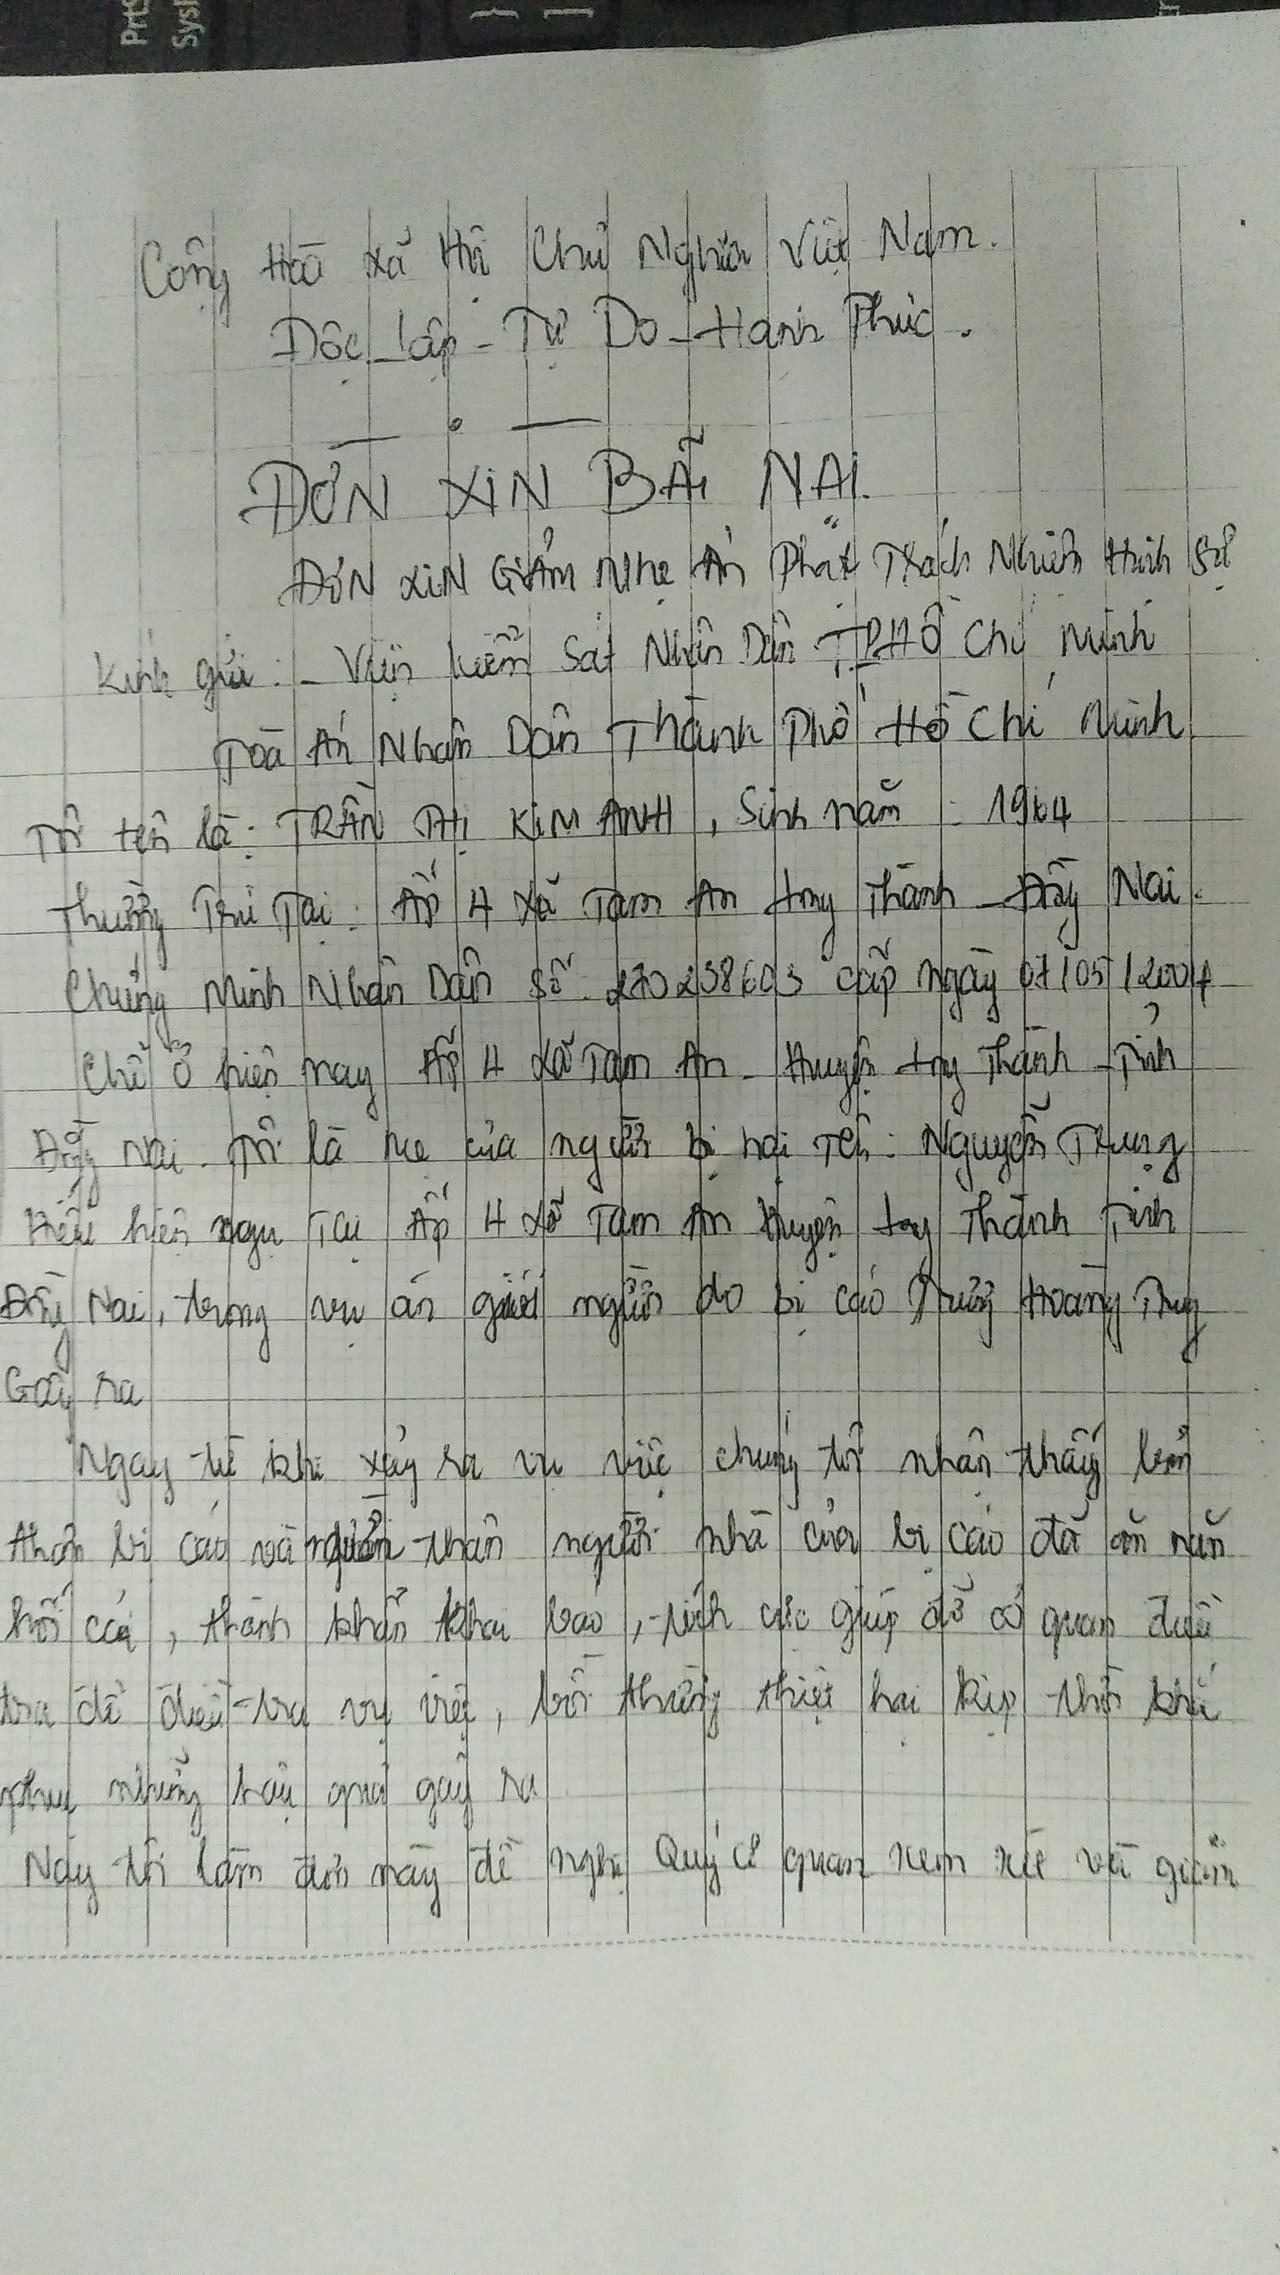 Prts
Sys
}
]
Cộng Hoà Xã Hội Chủ Nghĩa Việt Nam.
Độc lập - Tự Do - Hạnh Phúc.
ĐƠN XIN BÃI NẠI.
ĐƠN XIN GIẢM Nhẹ Án Phạt Trách Nhiệm Hình Sự
Kính gửi: - Viện kiểm Sát Nhân Dân TPHỒ Chí Minh
Toà Án Nhân Dân Thành Phố Hồ Chí Minh
Tôi tên là: TRẦN THỊ KIM ANH, Sinh năm: 1964
Thường Trú Tại: Ấp 4 Xã Tam An Long Thành - Đồng Nai.
Chứng Minh Nhân Dân Số: 270238603 cấp ngày 07/05/2004
Chỗ Ở hiện nay Ấp 4 Xã Tam An - Huyện Long Thành - Tỉnh
Đồng Nai. Tôi là mẹ của người bị hại Tên: Nguyễn Trung
Hiếu hiện ngụ Tại Ấp 4 Xã Tam An Huyện Long Thành Tỉnh
Đồng Nai, trong vụ án giết người do bị cáo Trương Hoàng
Gây ra
Ngay từ khi xảy ra vụ việc chúng tôi nhận thấy bản
thân bị cáo và thân người nhà của bị cáo đã ăn năn
hối cải, thành khẩn khai báo, tích cực giúp đỡ cơ quan điều
tra để điều tra vụ việc, bồi thường thiệt hại kịp thời khắc
phục những hậu quả gây ra
Nay tôi làm đơn này đề nghị Quý cơ quan xem xét và giảm